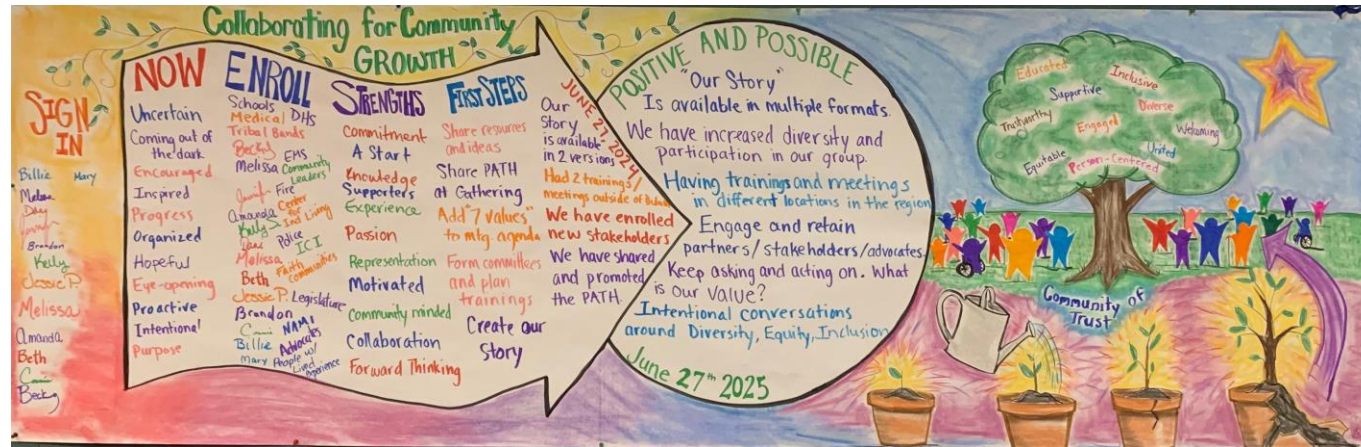 Collaborating for Community
GROWTH
SIGN
IN
Billie
Mary
Melissa
Brandon
Kelly
Jessie P.
Melissa
Amanda
Beth
Becky
NOW
Uncertain
Coming out of
the dark
Encouraged
Inspired
Progress
Organized
Hopeful
Eye-opening
Proactive
Intentional
Purpose
ENROLL
Schools
DHS
Medical
Tribal Bands
Becky
EMS
Melissa
Community
Leaders
Fire
Amanda
Center
for
Ind Living
Kelly
Police
ICI
Melissa
Beth
Faith
Communities
Jessie P.
Legislature
Brandon
NAMI
Billie
Advocates
Mary
People w/
Lived
Experience
STRENGTHS
Commitment
A Start
Knowledge
Supporters
Experience
Passion
Representation
Motivated
Community minded
Collaboration
Forward Thinking
FIRST STEPS
Share resources
and ideas
Share PATH
at Gathering
Add "7 values"
to mtg. agenda
Form committees
and plan
trainings
Create our
Story
JUNE 27, 2024
Our
Story
is available
in 2 versions
Had 2 trainings/
meetings outside of
We have enrolled
new stakeholders
We have shared
and promoted
the PATH.
POSITIVE AND POSSIBLE
"Our Story"
Is available in multiple formats.
We have increased diversity and
participation in our group.
Having trainings and meetings
in different locations in the region
Engage and retain
partners/stakeholders/advocates.
Keep asking and acting on. What
is our value?
Intentional conversations
around Diversity, Equity, Inclusion
June 27th 2025
Educated
Inclusive
Supportive
Diverse
Trustworthy
Engaged
Welcoming
United
Equitable
Person-Centered
Community of
Trust